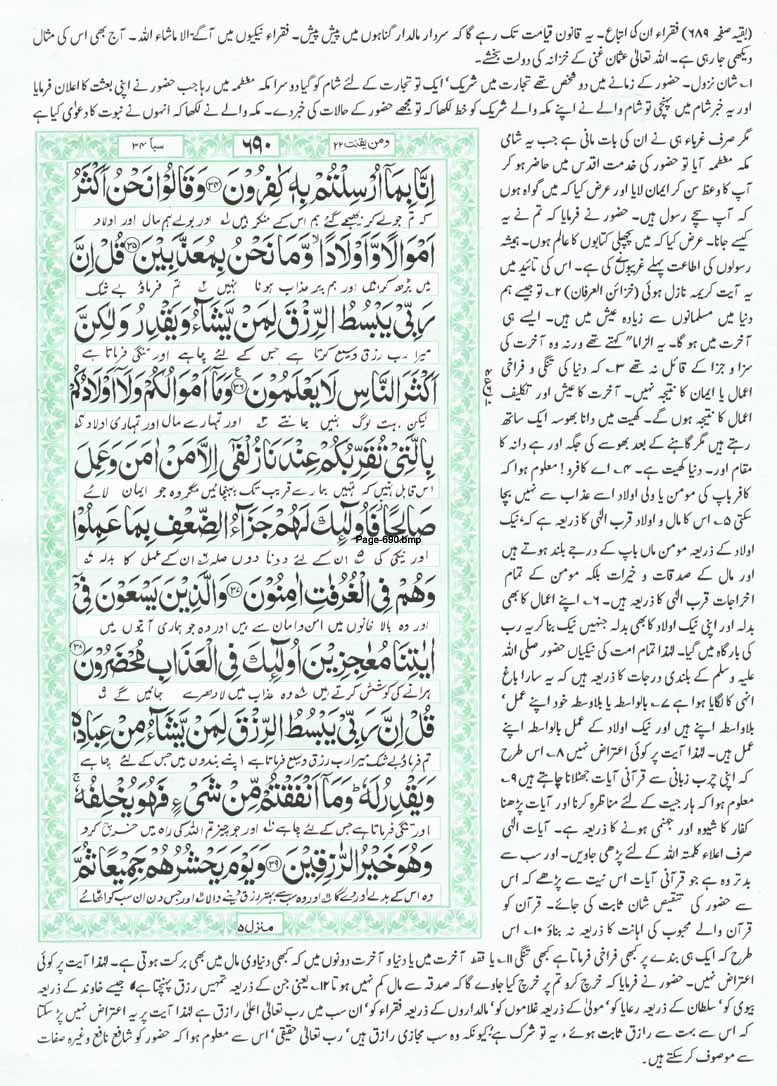 (بقیہ صفحہ ۶۸۹) فقراء ان کی اتباع۔ یہ قانون قیامت تک رہے گا کہ سردار مالدار گناہوں میں پیش پیش۔ فقراء نیکیوں میں آگے۔ الا ماشاء اللہ۔ آج بھی اس کی مثال
دیکھی جا رہی ہے۔ اللہ تعالیٰ عثمان غنی کے خزانہ کی دولت بخشے۔
۱؎ شان نزول۔ حضور کے زمانے میں دو شخص تھے تجارت میں شریک' ایک تو تجارت کے لئے شام کو گیا دوسرا مکہ معظمہ میں رہا جب حضور نے اپنی بعثت کا اعلان فرمایا
اور یہ خبر شام میں پہنچی تو شام والے نے اپنے مکہ والے شریک کو خط لکھا کہ تو مجھے حضور کے حالات کی خبر دے۔ مکہ والے نے لکھا کہ انہوں نے نبوت کا دعوٰی کیا ہے
مگر صرف غرباء ہی نے ان کی بات مانی ہے جب یہ شامی
مکہ معظمہ آیا تو حضور کی خدمت اقدس میں حاضر ہو کر
آپ کا وعظ سن کر ایمان لایا اور عرض کیا کہ میں گواہ ہوں
کہ آپ سچے رسول ہیں۔ حضور نے فرمایا کہ تم نے یہ
کیسے جانا۔ عرض کیا کہ میں پچھلی کتابوں کا عالم ہوں۔ ہمیشہ
رسولوں کی اطاعت پہلے غریبوں نے کی ہے۔ اس کی تائید میں
یہ آیت کریمہ نازل ہوئی (خزائن العرفان) ۲؎ تو جیسے ہم
دنیا میں مسلمانوں سے زیادہ عیش میں ہیں۔ ایسے ہی
آخرت میں ہو گا۔ یہ الزاما" کہتے تھے ورنہ وہ آخرت کی
سزا و جزا کے قائل نہ تھے ۳؎ کہ دنیا کی تنگی و فراخی
اعمال یا ایمان کا نتیجہ نہیں۔ آخرت کا عیش اور تکلیف
اعمال کا نتیجہ ہوں گے۔ کھیت میں دانا بھوسہ ایک ساتھ
رہتے ہیں مگر گاہنے کے بعد بھوسے کی جگہ اور ہے دانہ کا
مقام اور۔ دنیا کھیت ہے۔ ۴؎ اے کافرو! معلوم ہوا کہ
کافر باپ کی مومن یا ولی اولاد اسے عذاب سے نہیں بچا
سکتی ۵؎ اس کا مال و اولاد قرب الٰہی کا ذریعہ ہے کہ' نیک
اولاد کے ذریعہ مومن ماں باپ کے درجے بلند ہوتے ہیں
اور مال کے صدقات و خیرات بلکہ مومن کے تمام
اخراجات قرب الٰہی کا ذریعہ ہیں۔ ۶؎ اپنے اعمال کا بھی
بدلہ اور اپنی نیک اولاد کا بھی بدلہ جنہیں نیک بنا کر یہ رب
کی بارگاہ میں گیا۔ لہٰذا تمام امت کی نیکیاں حضور صلی اللہ
علیہ وسلم کے بلندی درجات کا ذریعہ ہیں کہ یہ سارا باغ
انہی کا لگایا ہوا ہے ۷؎ بالواسطہ یا بلاوسطہ خود اپنے عمل'
بلاواسطہ اپنے ہیں اور نیک اولاد کے عمل بالواسطہ اپنے
عمل ہیں۔ لہٰذا آیت پر کوئی اعتراض نہیں ۸؎ اس طرح
کہ اپنی چرب زبانی سے قرآنی آیات جھٹلانا چاہتے ہیں ۹؎
معلوم ہوا کہ ہار جیت کے لئے مناظرہ کرنا اور آیات پڑھنا
کفار کا شیوہ اور جہنمی ہونے کا ذریعہ ہے۔ آیات الٰہی
صرف اعلاء کلمتہ اللہ کے لئے پڑھی جاویں۔ اور سب سے
بدتر وہ ہے جو قرآنی آیات اس نیت سے پڑھے کہ اس
سے حضور کی تنقیص شان ثابت کی جائے۔ قرآن کو
قرآن والے محبوب کی اہانت کا ذریعہ نہ بناؤ ۱۰؎ اس
ومن یقنت ۲۲
۶۹۰
سبا ۳۴
اِنَّا بِمَاۤ اُرْسِلْتُمْ بِهٖ كٰفِرُوْنَ ﴿۳۴﴾ وَقَالُوْا نَحْنُ اَكْثَرُ
کہ تم جو لے کر بھیجے گئے ہم اس کے منکر ہیں لہ اور بولے ہم مال اور اولاد
اَمْوَالًا وَّاَوْلَادًا ۙ وَّمَا نَحْنُ بِمُعَذَّبِيْنَ ﴿۳۵﴾ قُلْ اِنَّ
میں بڑھ کر ہیں اور ہم پر عذاب ہونا نہیں تم فرماؤ بے شک
رَبِّيْ يَبْسُطُ الرِّزْقَ لِمَنْ يَّشَآءُ وَيَقْدِرُ وَلٰكِنَّ
میرا رب رزق وسیع کرتا ہے جس کے لئے چاہے اور تنگی فرماتا ہے
اَكْثَرَ النَّاسِ لَا يَعْلَمُوْنَ ﴿۳۶﴾ وَمَاۤ اَمْوَالُكُمْ وَلَاۤ اَوْلَادُكُمْ
لیکن بہت لوگ نہیں جانتے اور تمہارے مال اور تمہاری اولاد
بِالَّتِيْ تُقَرِّبُكُمْ عِنْدَنَا زُلْفٰۤى اِلَّا مَنْ اٰمَنَ وَعَمِلَ
اس قابل نہیں کہ تمہیں ہمارے قریب تک پہنچائیں مگر وہ جو ایمان لائے
صَالِحًا ۫ فَاُولٰٓئِكَ لَهُمْ جَزَآءُ الضِّعْفِ بِمَا عَمِلُوْا
Page-690.bmp
اور نیکی کی ان کے لئے دونا دوں صلہ ان کے عمل کا بدلہ
وَهُمْ فِي الْغُرُفٰتِ اٰمِنُوْنَ ﴿۳۷﴾ وَالَّذِيْنَ يَسْعَوْنَ فِيْۤ
اور وہ بالا خانوں میں امن و امان سے ہیں اور وہ جو ہماری آیتوں میں
اٰيٰتِنَا مُعٰجِزِيْنَ اُولٰٓئِكَ فِي الْعَذَابِ مُحْضَرُوْنَ ﴿۳۸﴾
ہرانے کی کوشش کرتے ہیں وہ عذاب میں لا دھرے جائیں گے
قُلْ اِنَّ رَبِّيْ يَبْسُطُ الرِّزْقَ لِمَنْ يَّشَآءُ مِنْ عِبَادِهٖ
تم فرماؤ بے شک میرا رب رزق وسیع فرماتا ہے اپنے بندوں میں جس کے لئے چاہے
وَيَقْدِرُ لَهٗ ؕ وَمَاۤ اَنْفَقْتُمْ مِّنْ شَيْءٍ فَهُوَ يُخْلِفُهٗ ۚ
اور تنگی فرماتا ہے جس کے لئے چاہے اور جو چیز تم اللہ کی راہ میں خرچ کرو
وَهُوَ خَيْرُ الرّٰزِقِيْنَ ﴿۳۹﴾ وَيَوْمَ يَحْشُرُهُمْ جَمِيْعًا ثُمَّ
وہ اس کے بدلے اور دے گا اور وہ سب سے بہتر رزق دینے والا اور جس دن ان سب کو اٹھائے
منزل ۵
طرح کہ ایک ہی بندے پر کبھی فراخی فرماتا ہے کبھی تنگی ۱۱؎ یا فقط آخرت میں یا دنیا و آخرت دونوں میں کہ کبھی دنیاوی مال میں بھی برکت ہوتی ہے۔ لہٰذا آیت پر کوئی
اعتراض نہیں۔ حضور نے فرمایا کہ خرچ کرو تم پر خرچ کیا جاوے گا کہ صدقہ سے مال کم نہیں ہوتا ۱۲؎ یعنی جن کے ذریعہ تمہیں رزق پہنچتا ہے' جیسے خاوند کے ذریعہ
بیوی کو' سلطان کے ذریعہ رعایا کو' مولیٰ کے ذریعہ غلاموں کو' مالداروں کے ذریعہ فقراء کو' ان سب میں رب تعالیٰ اعلیٰ رازق ہے لہٰذا آیت پر یہ اعتراض نہیں پڑ سکتا
کہ اس سے بہت سے رازق ثابت ہوئے' یہ تو شرک ہے' کیونکہ وہ سب مجازی رازق ہیں' رب تعالیٰ حقیقی' اس سے معلوم ہوا کہ حضور کو شافع نافع وغیرہ صفات
سے موصوف کر سکتے ہیں۔